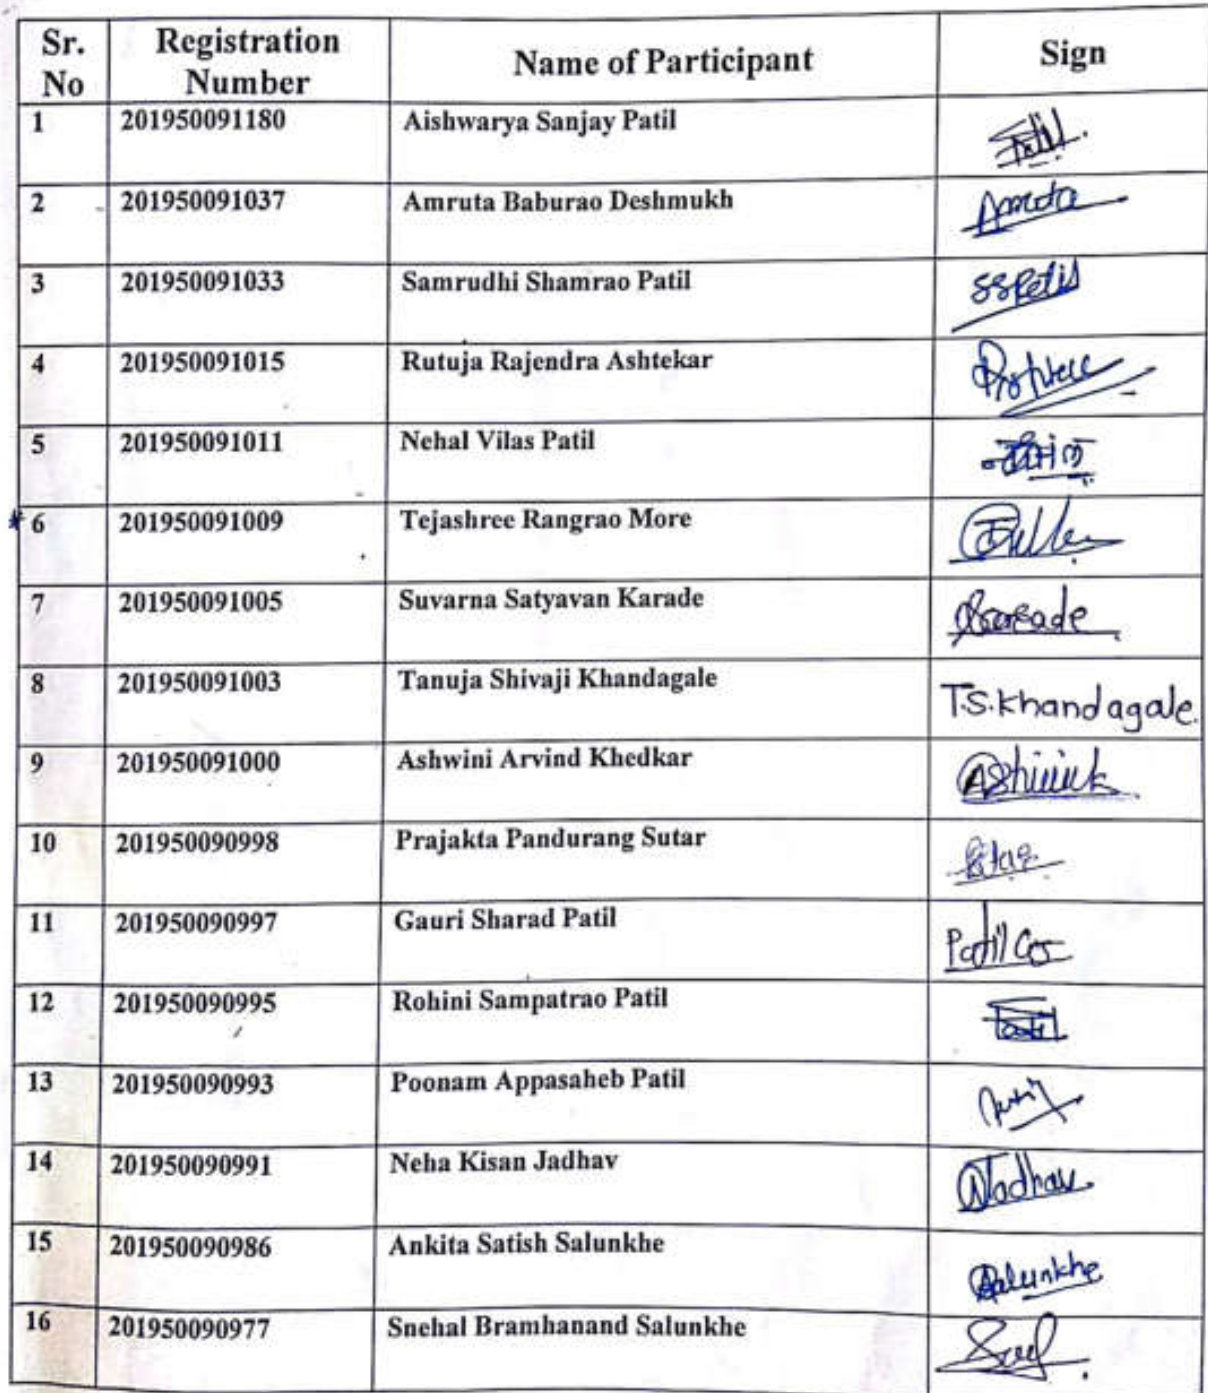 Sr. No Registration Number Name of Participant Sign
1 201950091180 Aishwarya Sanjay Patil
2 201950091037 Amruta Baburao Deshmukh Amruta
3 201950091033 Samrudhi Shamrao Patil SSPatil
4 201950091015 Rutuja Rajendra Ashtekar
5 201950091011 Nehal Vilas Patil
* 6 201950091009 Tejashree Rangrao More
7 201950091005 Suvarna Satyavan Karade
8 201950091003 Tanuja Shivaji Khandagale T.S.Khandagale.
9 201950091000 Ashwini Arvind Khedkar
10 201950090998 Prajakta Pandurang Sutar
11 201950090997 Gauri Sharad Patil Patil GS
12 201950090995 Rohini Sampatrao Patil
13 201950090993 Poonam Appasaheb Patil
14 201950090991 Neha Kisan Jadhav NJadhav.
15 201950090986 Ankita Satish Salunkhe ASalunkhe
16 201950090977 Snehal Bramhanand Salunkhe